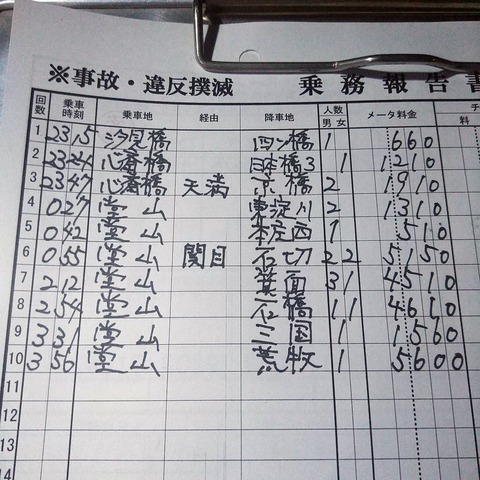 ※事故・違反撲滅 乗務報告書
回数 乗車時刻 乗車地 経由 降車地 人数 男 女 メータ料金 料
1 2315 汐見橋 四ツ橋 1 660
2 2324 心斎橋 日本橋3 1 1210
3 2347 心斎橋 天満 京橋 2 1910
4 027 堂山 東淀川 2 1310
5 042 堂山 本庄西 1 510
6 055 堂山 関目 石切 2 2 5150
7 212 堂山 箕面 3 1 4510
8 254 堂山 石橋 1 1 4610
9 331 堂山 三国 1 1560
10 356 堂山 荒牧 1 5600
11
12
13
14